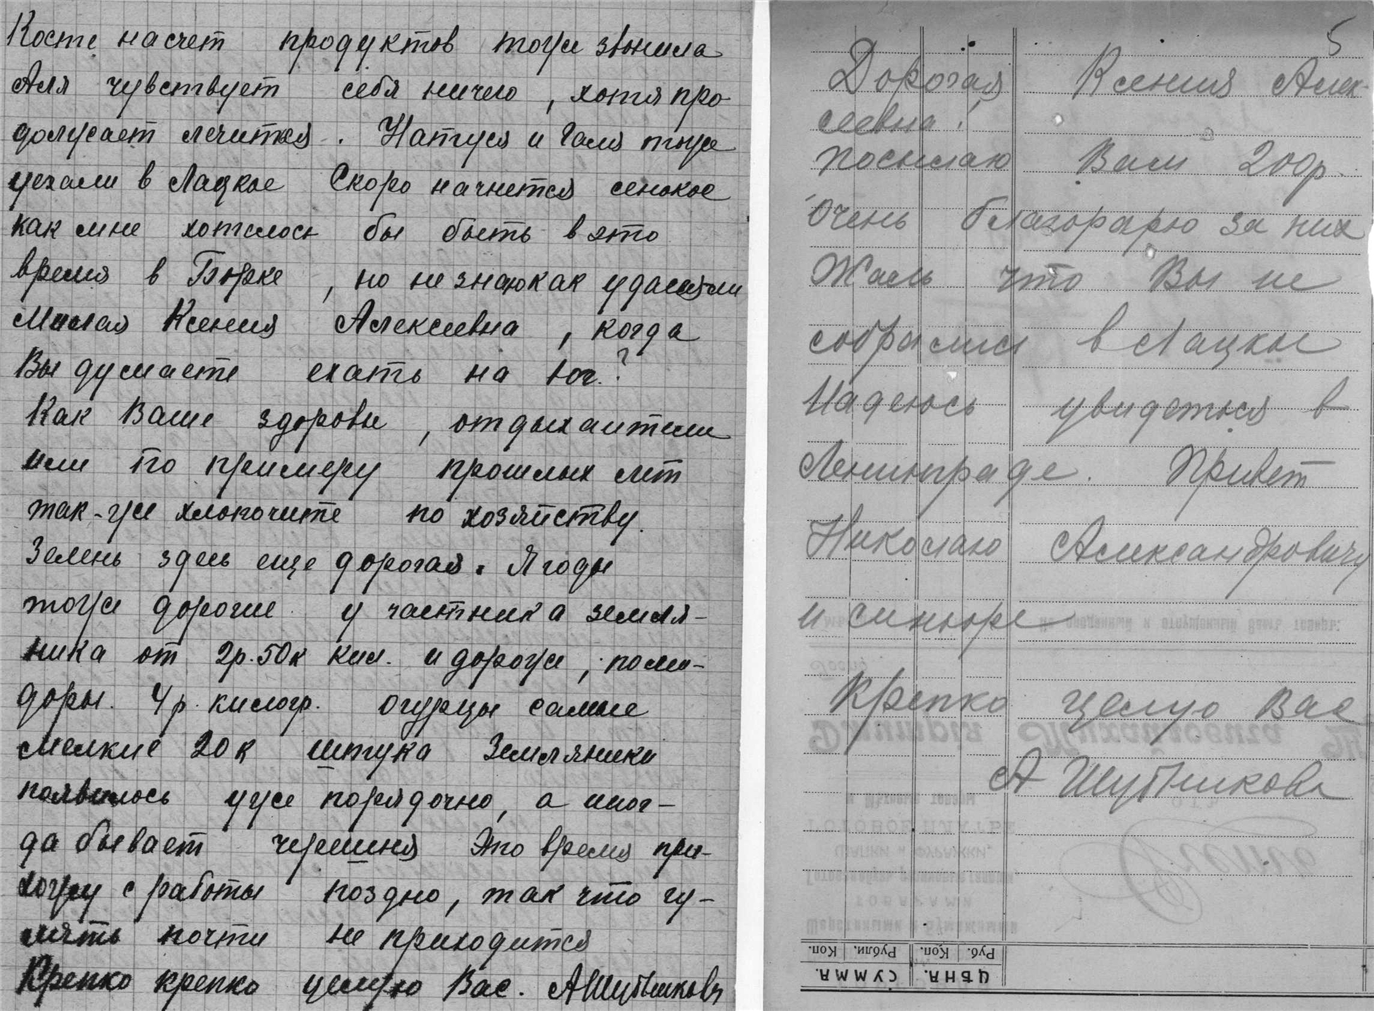 Косте насчет продуктов тоже звонила
Аля чувствует себя ничего, хотя про-
должает лечится. Натуся и Галя тоже
уехали в Лацкое Скоро начнется сенокос
как мне хотелось бы быть в это
время в Борке, но не знаю как удастся ли
Милая Ксения Алексеевна, когда
Вы думаете ехать на юг?
Как Ваше здоровье, отдыхаите ли
или по примеру прошлых лет
так-же хлопочите по хозяйству.
Зелень здесь еще дорогая. Ягоды
тоже дорогие у частника земля-
ника от 2р.50к кил. и дороже, поми-
доры. 4р. килогр. огурцы самые
мелкие 20к штука Земляники
появилось уже порядочно, а иног-
да бывает черешня Это время при-
хожу с работы поздно, так что гу-
лять почти не приходится
Крепко крепко целую Вас. АШутникова
5
Дорогая Ксения Алек-
сеевна!
посылаю Вам 200р.
Очень благодарю за них
Жаль что Вы не
собрались в Лацкое
Надеюсь увидеться в
Ленинграде. Привет
Николаю Александровичу
и синьоре
Крепко целую Вас
А Шутникова
ГОТОВОЕ ПЛАТЬЕ
ШАПКИ и ФУРАЖКИ.
ТОВАРАМИ
Руб. Коп. Рубли. Коп.
ЦѢНА. СУММА.